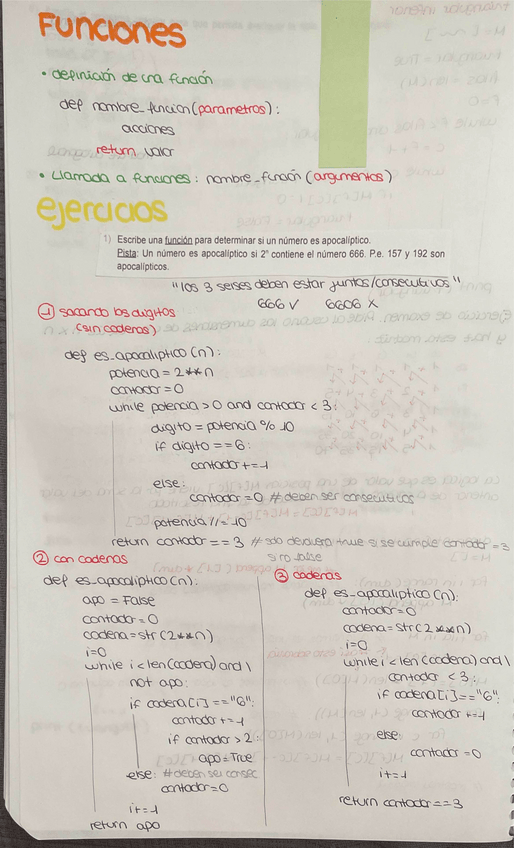 FUNCIONES
• definición de una función
def nombre_función(parametros):
acciones
return valor
• Llamada a funciones: nombre_función(argumentos)
ejercicios
1) Escribe una función para determinar si un número es apocalíptico.
Pista: Un número es apocalíptico si 2ⁿ contiene el número 666. P.e. 157 y 192 son
apocalípticos.
"los 3 seises deben estar juntos/consecutivos"
666 V 6606 X
1 sacando los dígitos
(sin cadenas)
def es_apocaliptico(n):
potencia=2**n
contador=0
while potencia>0 and contador<3:
digito=potencia%10
if digito==6:
contador+=1
else:
contador=0 #deben ser consecutivos
potencia//=10
return contador==3 #solo devuelve true si se cumple contador=3
si no false
2 con cadenas
def es_apocaliptico(n):
apo=False
contador=0
cadena=str(2**n)
i=0
while i<len(cadena)and\
not apo:
if cadena[i]=="6":
contador+=1
if contador>2:
apo=True
else: #deben ser consec
contador=0
i+=1
return apo
3 cadenas
def es_apocaliptico(n):
contador=0
cadena=str(2**n)
i=0
while i<len(cadena)and\
contador<3:
if cadena[i]=="6":
contador+=1
else:
contador=0
i+=1
return contador==3